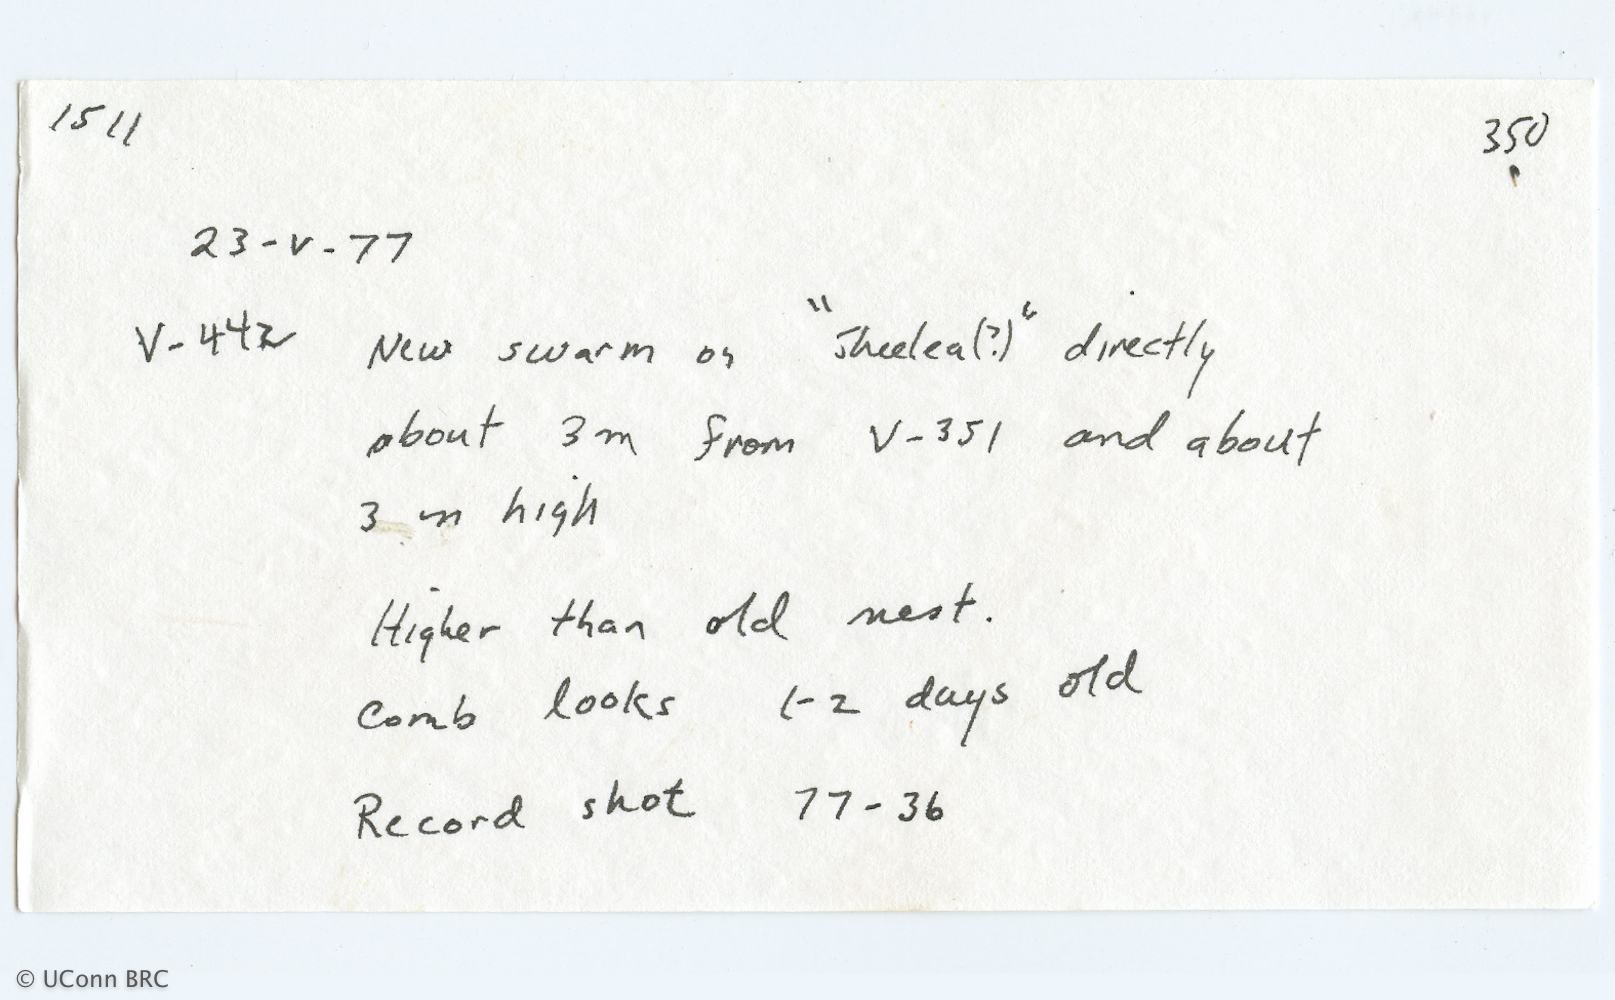 1511
350
23-V-77
V-442 New swarm on "Sheelea(?)" directly
about 3m from V-351 and about
3 m high
Higher than old nest.
Comb looks 1-2 days old
Record shot 77-36
© UConn BRC